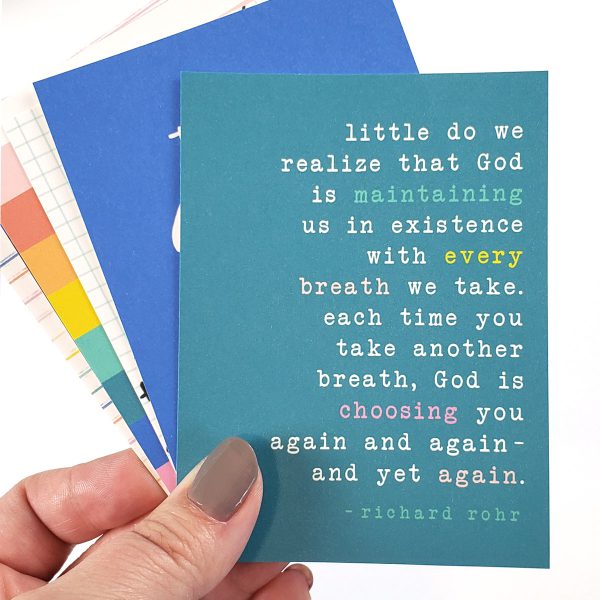 little do we
realize that God
is maintaining
us in existence
with every
breath we take.
each time you
take another
breath, God is
choosing you
again and again-
and yet again.
-richard rohr